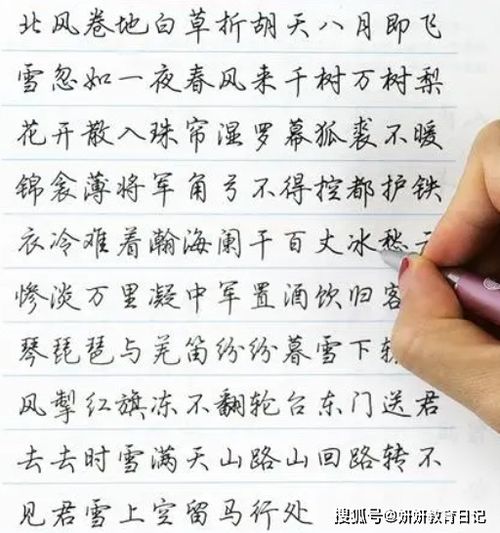 北风卷地白草折胡天八月即飞
雪忽如一夜春风来千树万树梨
花开散入珠帘湿罗幕狐裘不暖
锦衾薄将军角弓不得控都护铁
衣冷难着瀚海阑干百丈冰愁
惨淡万里凝中军置酒饮归客
琴琵琶与羌笛纷纷暮雪下
风掣红旗冻不翻轮台东门送君
去去时雪满天山路山回路转不
见君雪上空留马行处
搜狐号@妍妍教育日记